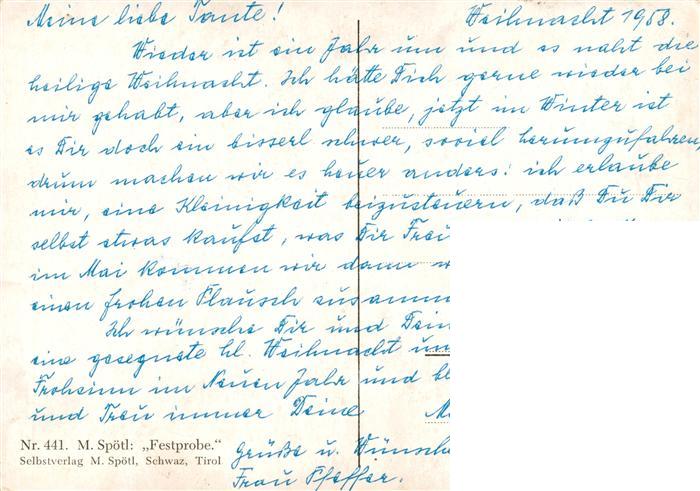 Meine liebe Tante! Weihnacht 1958.
Wieder ist ein Jahr um und es naht die
heilige Weihnacht. Ich hätte Dich gerne wieder bei
mir gehabt, aber ich glaube, jetzt im Winter ist
es Dir doch ein bisserl schwer, soviel herumzufahren,
drum machen wir es heuer anders: ich erlaube
mir, eine Kleinigkeit beizusteuern, daß Du Dir
selbst etwas kaufst, was Dir Freu
im Mai kommen wir dann w
einen frohen Plausch zusamm
Ich wünsche Dir und Dein
eine gesegnete hl. Weihnacht un
Frohsinn im Neuen Jahr und be
und Treu immer Deine M
Nr. 441. M. Spötl: „Festprobe.“
Selbstverlag M. Spötl, Schwaz, Tirol
Grüße u. Wünsche
Frau Pfeffer.